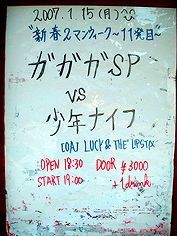 2007.1.15(月)
"新春2マンウィーク〜11発目〜
ガガガSP
VS
少年ナイフ
LUCY & THE UPSTAX
OPEN 18:30 DOOR ¥3000
START 19:00 +1drink